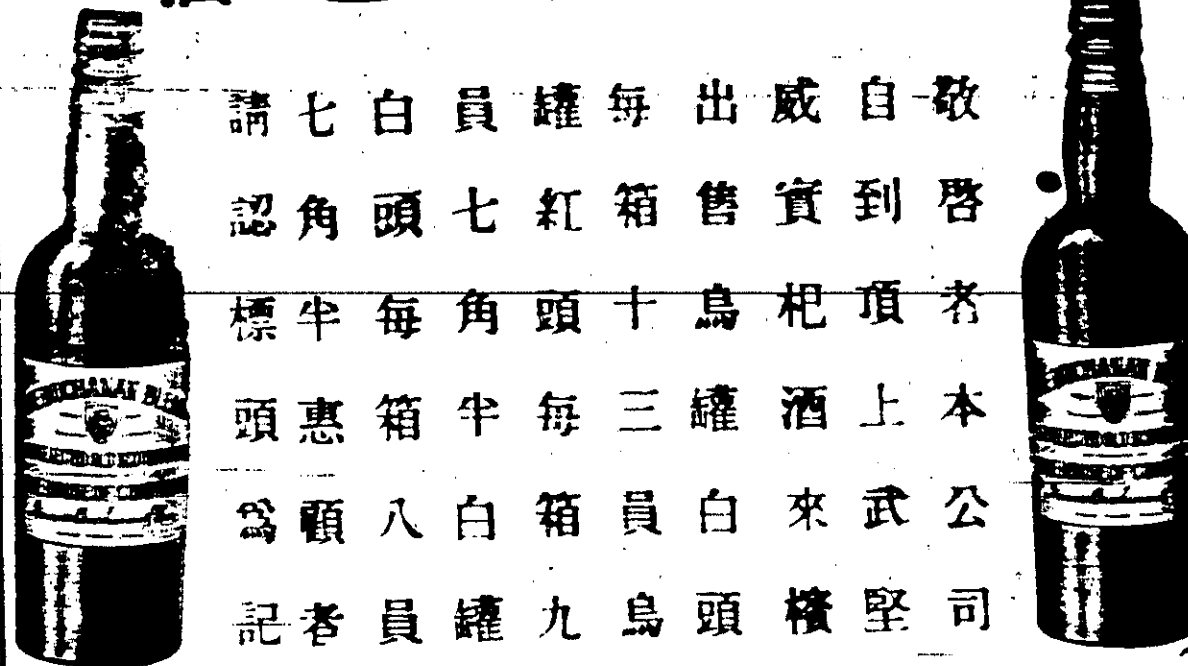 敬啓者本公司
自到頂上武堅
威實杞酒來檳
出售烏罐白頭
每箱十三員烏
罐紅頭每箱九
員七角半白罐
白頭每箱八員
七角半惠顧者
請認標頭爲記
BUCHANAN
BUCHANAN